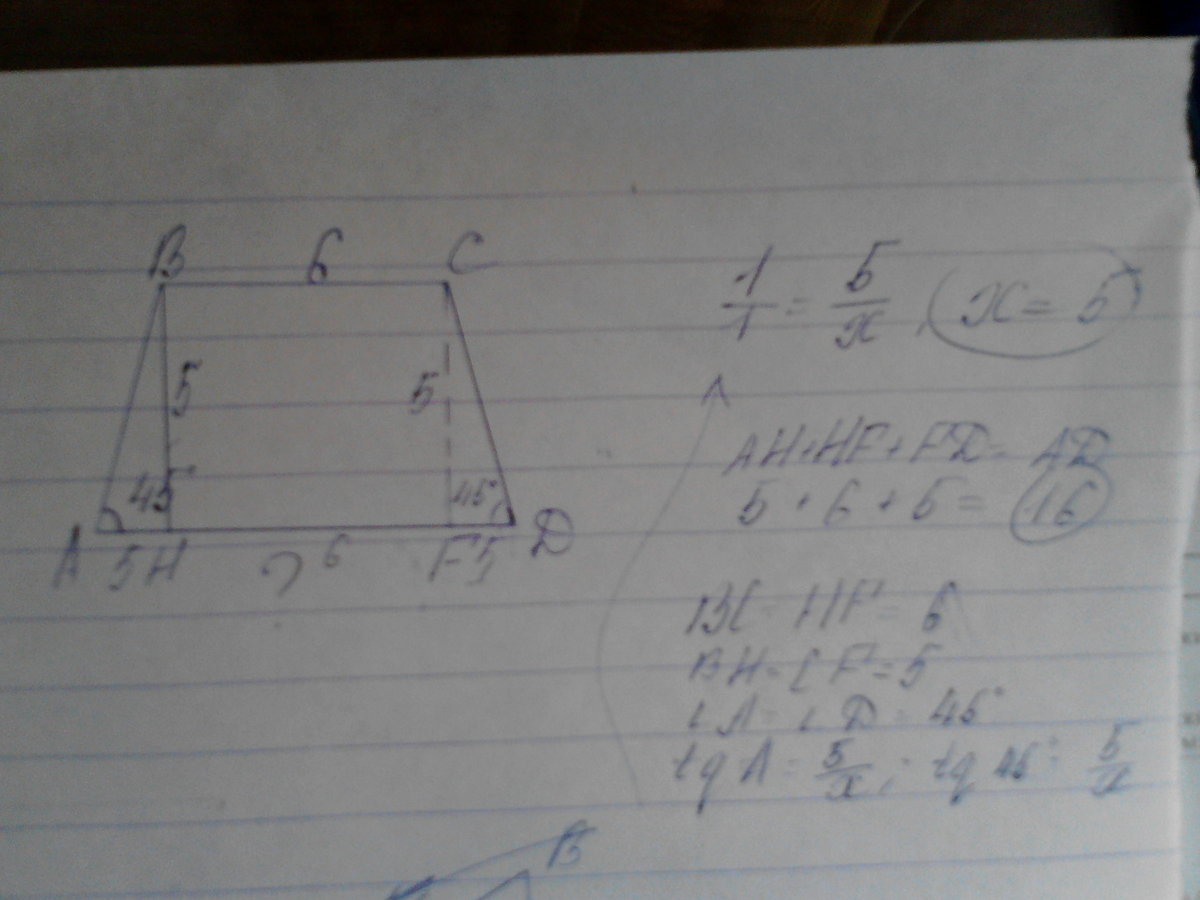 B 6 C
5 5
45° 45°
A 5 H ? 6 F 5 D
1/1 = 5/x, x = 5
AH+HF+FD= AD
5 + 6 + 5 = 16
BC = HF = 6
BH = CF = 5
∠A = ∠D = 45°
tg A = 5/x ; tg 45° = 5/x
B